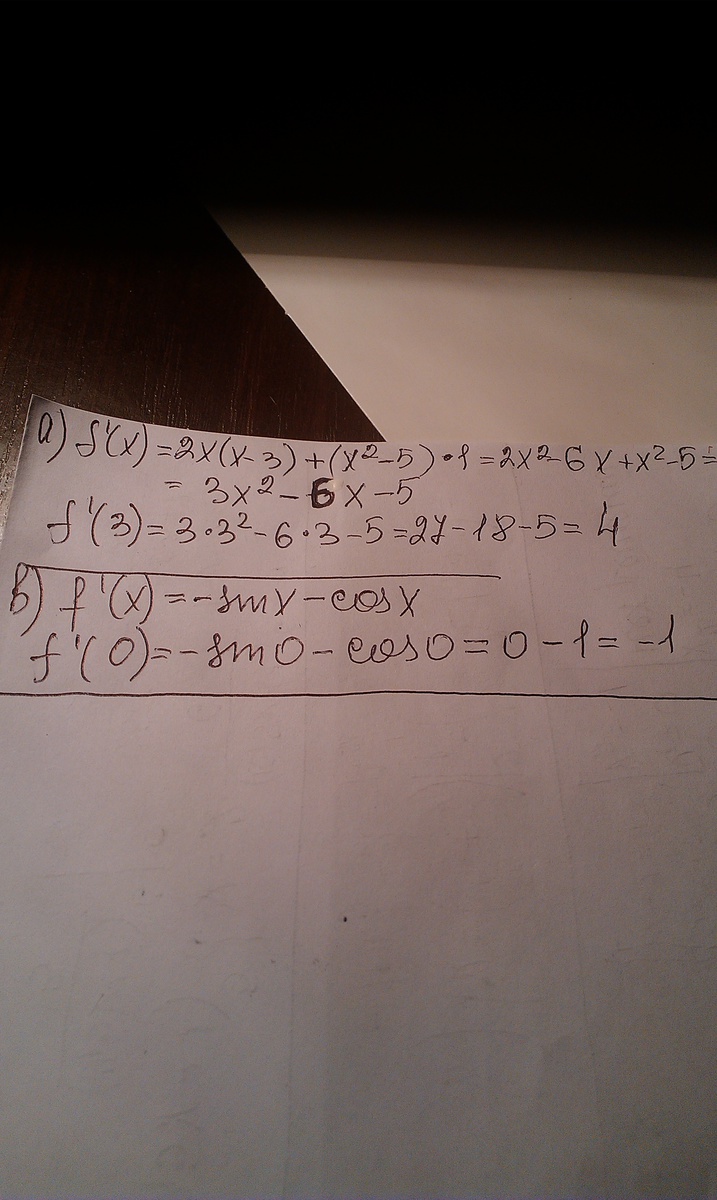 а) f'(x)=2x(x-3)+(x²-5)·1=2x²-6x+x²-5=
= 3x²-6x-5
f'(3)=3·3²-6·3-5=27-18-5=4
в) f'(x)=-sinx-cosx
f'(0)=-sin0-cos0=0-1=-1